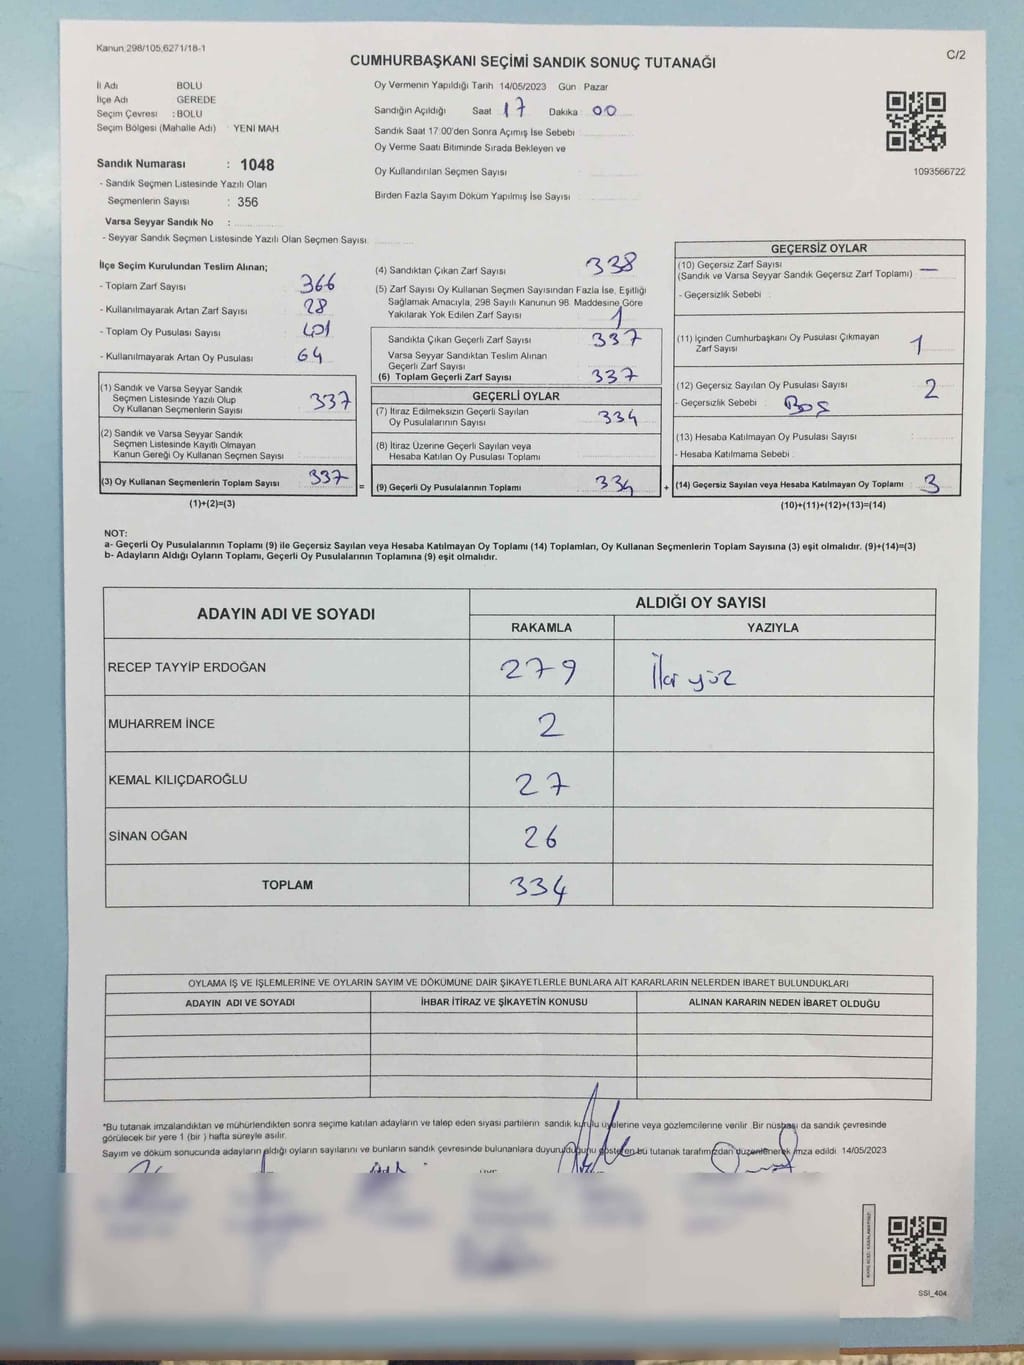 Kanun 298/105,6271/18-1
C/2
CUMHURBAŞKANI SEÇİMİ SANDIK SONUÇ TUTANAĞI
İl Adı BOLU
İlçe Adı GEREDE
Seçim Çevresi : BOLU
Seçim Bölgesi (Mahalle Adı) YENİ MAH
Sandık Numarası : 1048
- Sandık Seçmen Listesinde Yazılı Olan
Seçmenlerin Sayısı : 356
Varsa Seyyar Sandık No :
- Seyyar Sandık Seçmen Listesinde Yazılı Olan Seçmen Sayısı
Oy Vermenin Yapıldığı Tarih 14/05/2023 Gün Pazar
Sandığın Açıldığı Saat 17 Dakika 00
Sandık Saat 17:00'den Sonra Açımış İse Sebebi
Oy Verme Saati Bitiminde Sırada Bekleyen ve
Oy Kullandırılan Seçmen Sayısı
Birden Fazla Sayım Döküm Yapılmış İse Sayısı
1093566722
İlçe Seçim Kurulundan Teslim Alınan;
- Toplam Zarf Sayısı 366
- Kullanılmayarak Artan Zarf Sayısı 28
- Toplam Oy Pusulası Sayısı 401
- Kullanılmayarak Artan Oy Pusulası 64
(1) Sandık ve Varsa Seyyar Sandık
Seçmen Listesinde Yazılı Olup
Oy Kullanan Seçmenlerin Sayısı 337
(2) Sandık ve Varsa Seyyar Sandık
Seçmen Listesinde Kayıtlı Olmayan
Kanun Gereği Oy Kullanan Seçmen Sayısı
(3) Oy Kullanan Seçmenlerin Toplam Sayısı 337
(1)+(2)=(3)
(4) Sandıktan Çıkan Zarf Sayısı 338
(5) Zarf Sayısı Oy Kullanan Seçmen Sayısından Fazla İse, Eşitliği
Sağlamak Amacıyla, 298 Sayılı Kanunun 98. Maddesine Göre
Yakılarak Yok Edilen Zarf Sayısı 1
Sandıkta Çıkan Geçerli Zarf Sayısı 337
Varsa Seyyar Sandıktan Teslim Alınan
Geçerli Zarf Sayısı
(6) Toplam Geçerli Zarf Sayısı 337
GEÇERLİ OYLAR
(7) İtiraz Edilmeksizin Geçerli Sayılan
Oy Pusulalarının Sayısı 334
(8) İtiraz Üzerine Geçerli Sayılan veya
Hesaba Katılan Oy Pusulası Toplamı
= (9) Geçerli Oy Pusulalarının Toplamı 334 +
GEÇERSİZ OYLAR
(10) Geçersiz Zarf Sayısı
(Sandık ve Varsa Seyyar Sandık Geçersiz Zarf Toplamı) —
- Geçersizlik Sebebi :
(11) İçinden Cumhurbaşkanı Oy Pusulası Çıkmayan
Zarf Sayısı 1
(12) Geçersiz Sayılan Oy Pusulası Sayısı 2
- Geçersizlik Sebebi : Boş
(13) Hesaba Katılmayan Oy Pusulası Sayısı :
- Hesaba Katılmama Sebebi
(14) Geçersiz Sayılan veya Hesaba Katılmayan Oy Toplamı : 3
(10)+(11)+(12)+(13)=(14)
NOT:
a- Geçerli Oy Pusulalarının Toplamı (9) ile Geçersiz Sayılan veya Hesaba Katılmayan Oy Toplamı (14) Toplamları, Oy Kullanan Seçmenlerin Toplam Sayısına (3) eşit olmalıdır. (9)+(14)=(3)
b- Adayların Aldığı Oyların Toplamı, Geçerli Oy Pusulalarının Toplamına (9) eşit olmalıdır.
ADAYIN ADI VE SOYADI
ALDIĞI OY SAYISI
RAKAMLA YAZIYLA
RECEP TAYYİP ERDOĞAN 279 yüz
MUHARREM İNCE 2
KEMAL KILIÇDAROĞLU 27
SİNAN OĞAN 26
TOPLAM 334
OYLAMA İŞ VE İŞLEMLERİNE VE OYLARIN SAYIM VE DÖKÜMÜNE DAİR ŞİKAYETLERLE BUNLARA AİT KARARLARIN NELERDEN İBARET BULUNDUKLARI
ADAYIN ADI VE SOYADI İHBAR İTİRAZ VE ŞİKAYETİN KONUSU ALINAN KARARIN NEDEN İBARET OLDUĞU
*Bu tutanak imzalandıktan ve mühürlendikten sonra seçime katılan adayların ve talep eden siyasi partilerin sandık kurulu üyelerine veya gözlemcilerine verilir. Bir nüshası da sandık çevresinde
görülecek bir yere 1 (bir ) hafta süreyle asılır.
Sayım ve döküm sonucunda adayların aldığı oyların sayılarını ve bunların sandık çevresinde bulunanlara duyurulduğunu gösteren bu tutanak tarafımızdan düzenlenerek imza edildi. 14/05/2023
SSI_404